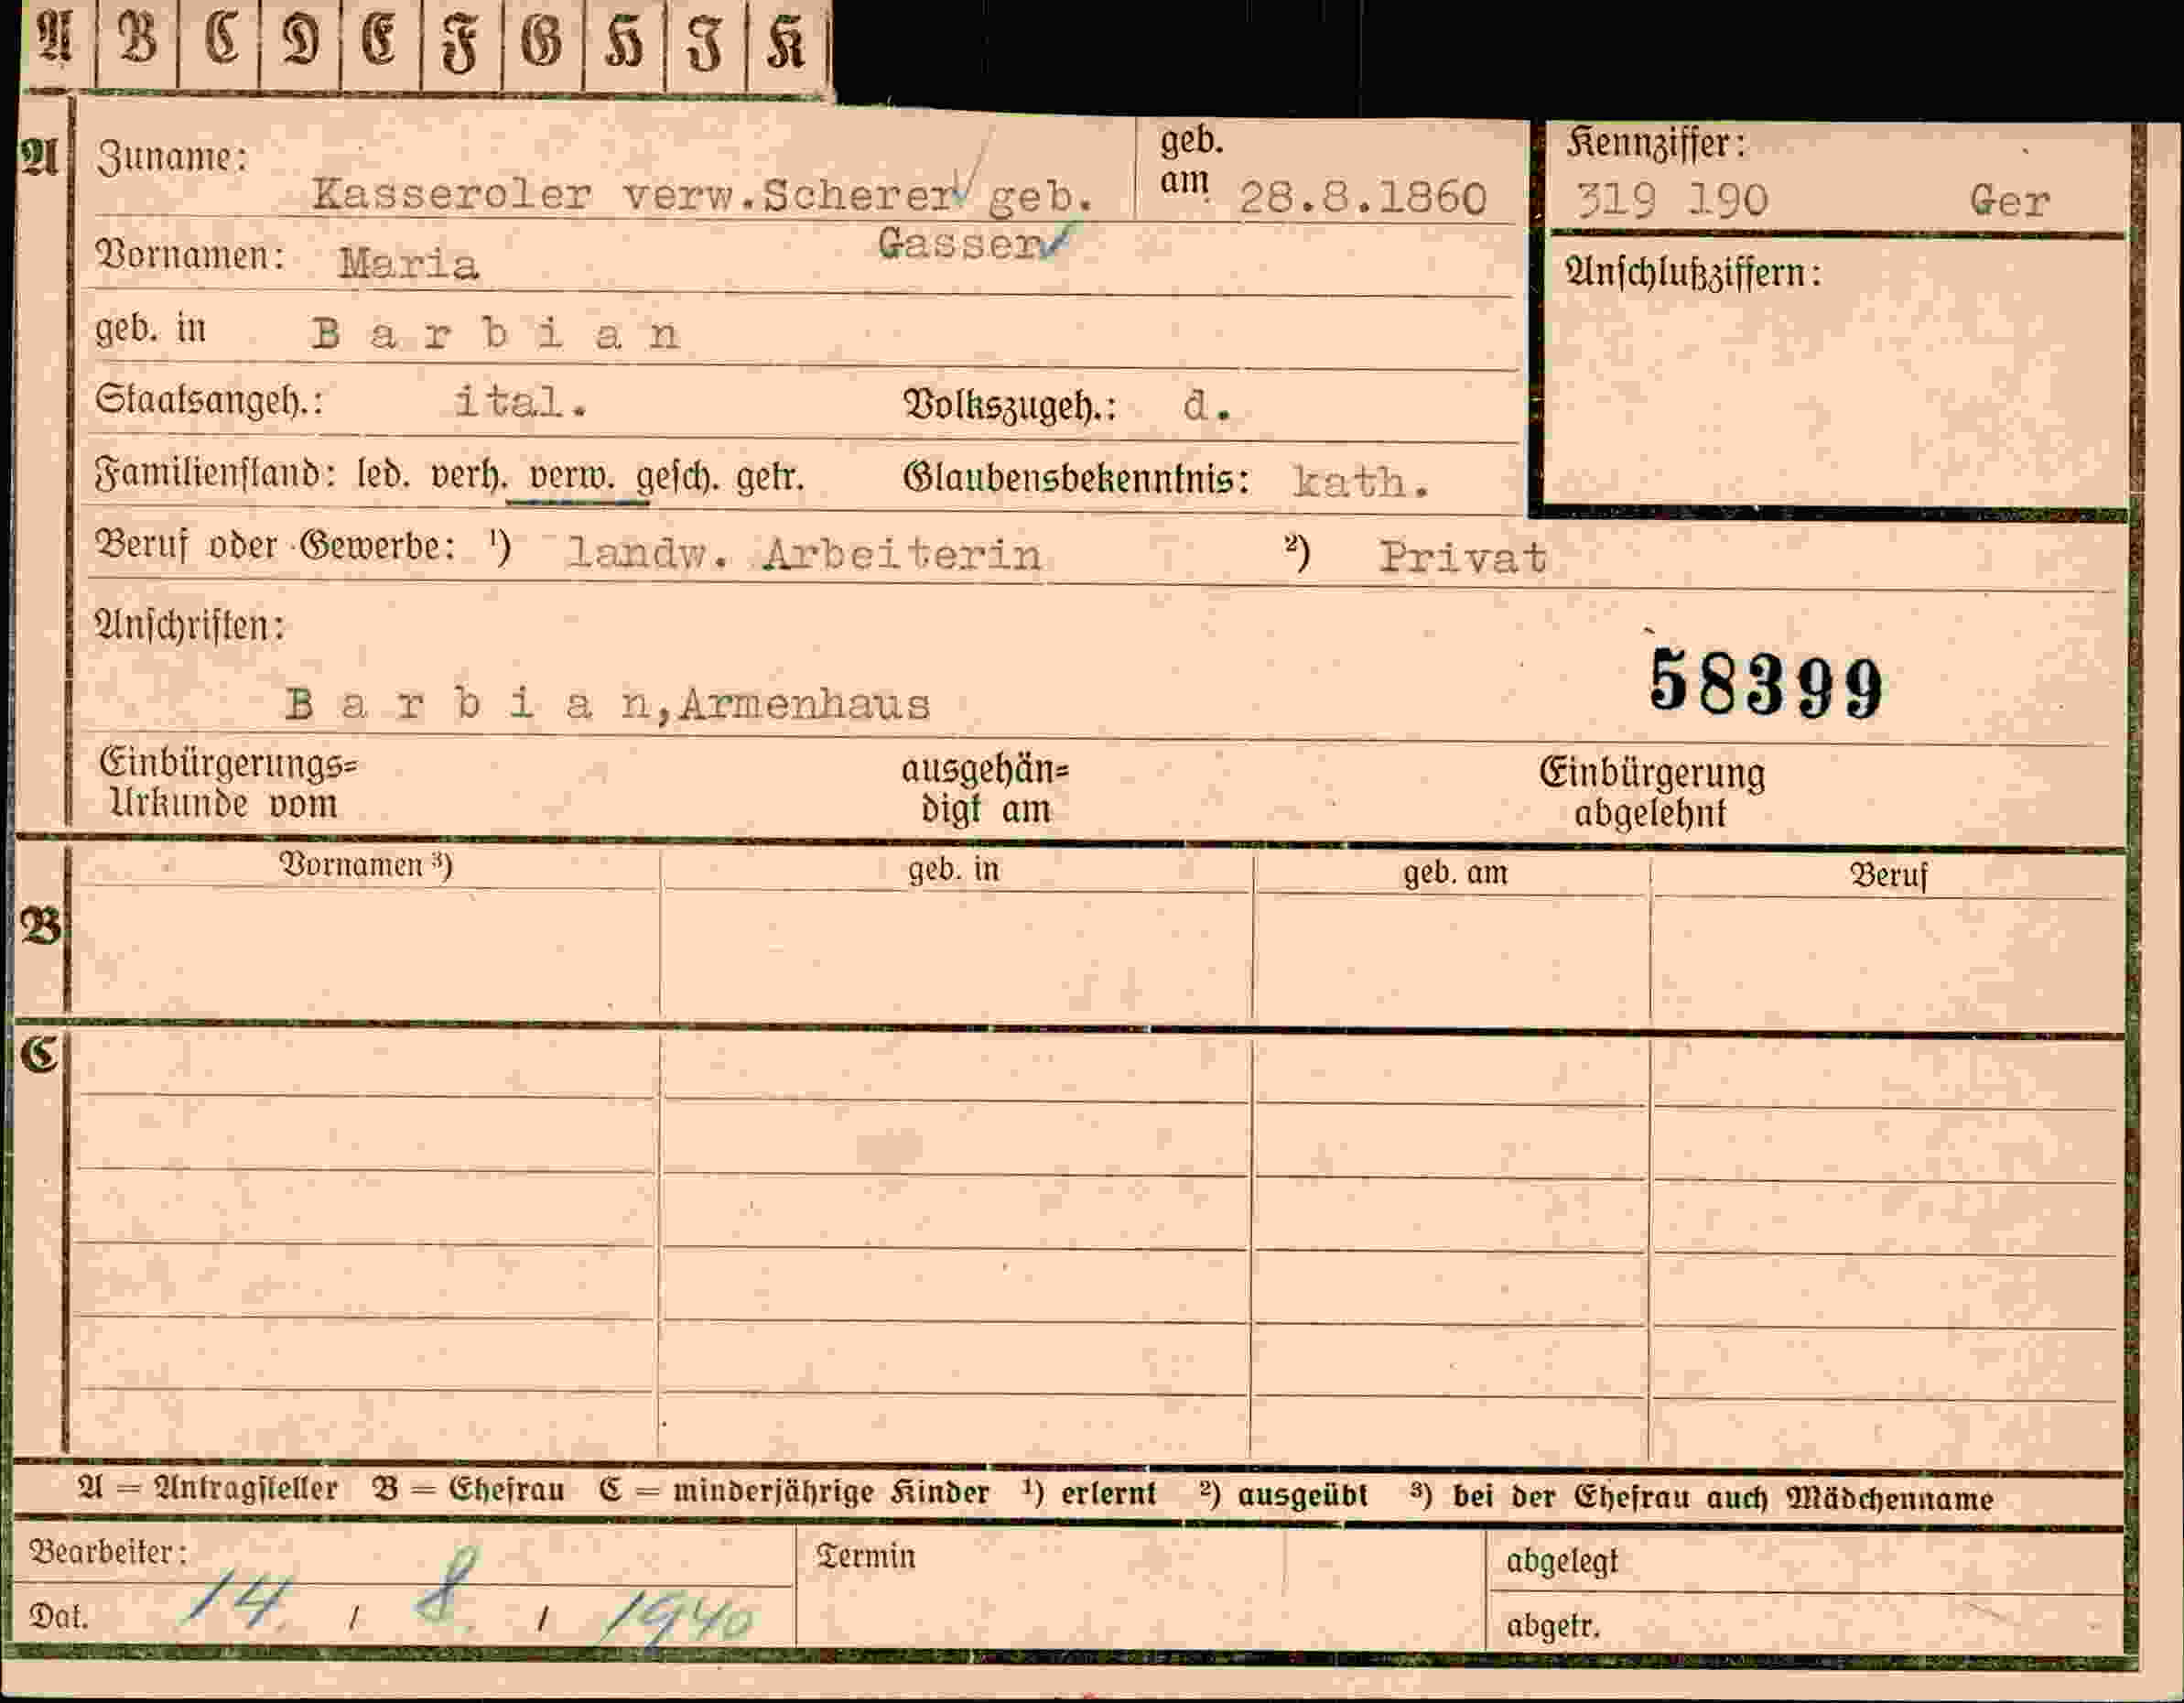 A B C D E F G H I K
A Zuname: Kasseroler verw.Scherer geb. geb. am 28.8.1860 Kennziffer:
319 190 Ger
Gasser
Vornamen: Maria
Anschlußziffern:
geb. in B a r b i a n
Staatsangeh.: ital. Volkszugeh.: d.
Familienstand: led. verh. verw. gesch. getr. Glaubensbekenntnis: kath.
Beruf oder Gewerbe: ¹) landw. Arbeiterin ²) Privat
Anschriften:
58399
B a r b i a n,Armenhaus
Einbürgerungs= ausgehän= Einbürgerung
Urkunde vom digt am abgelehnt
Vornamen ³) geb. in geb. am Beruf
B
C
A = Antragsteller B = Ehefrau C = minderjährige Kinder ¹) erlernt ²) ausgeübt ³) bei der Ehefrau auch Mädchenname
Bearbeiter: Termin abgelegt
Dat. 14. / 8. / 1940 abgetr.